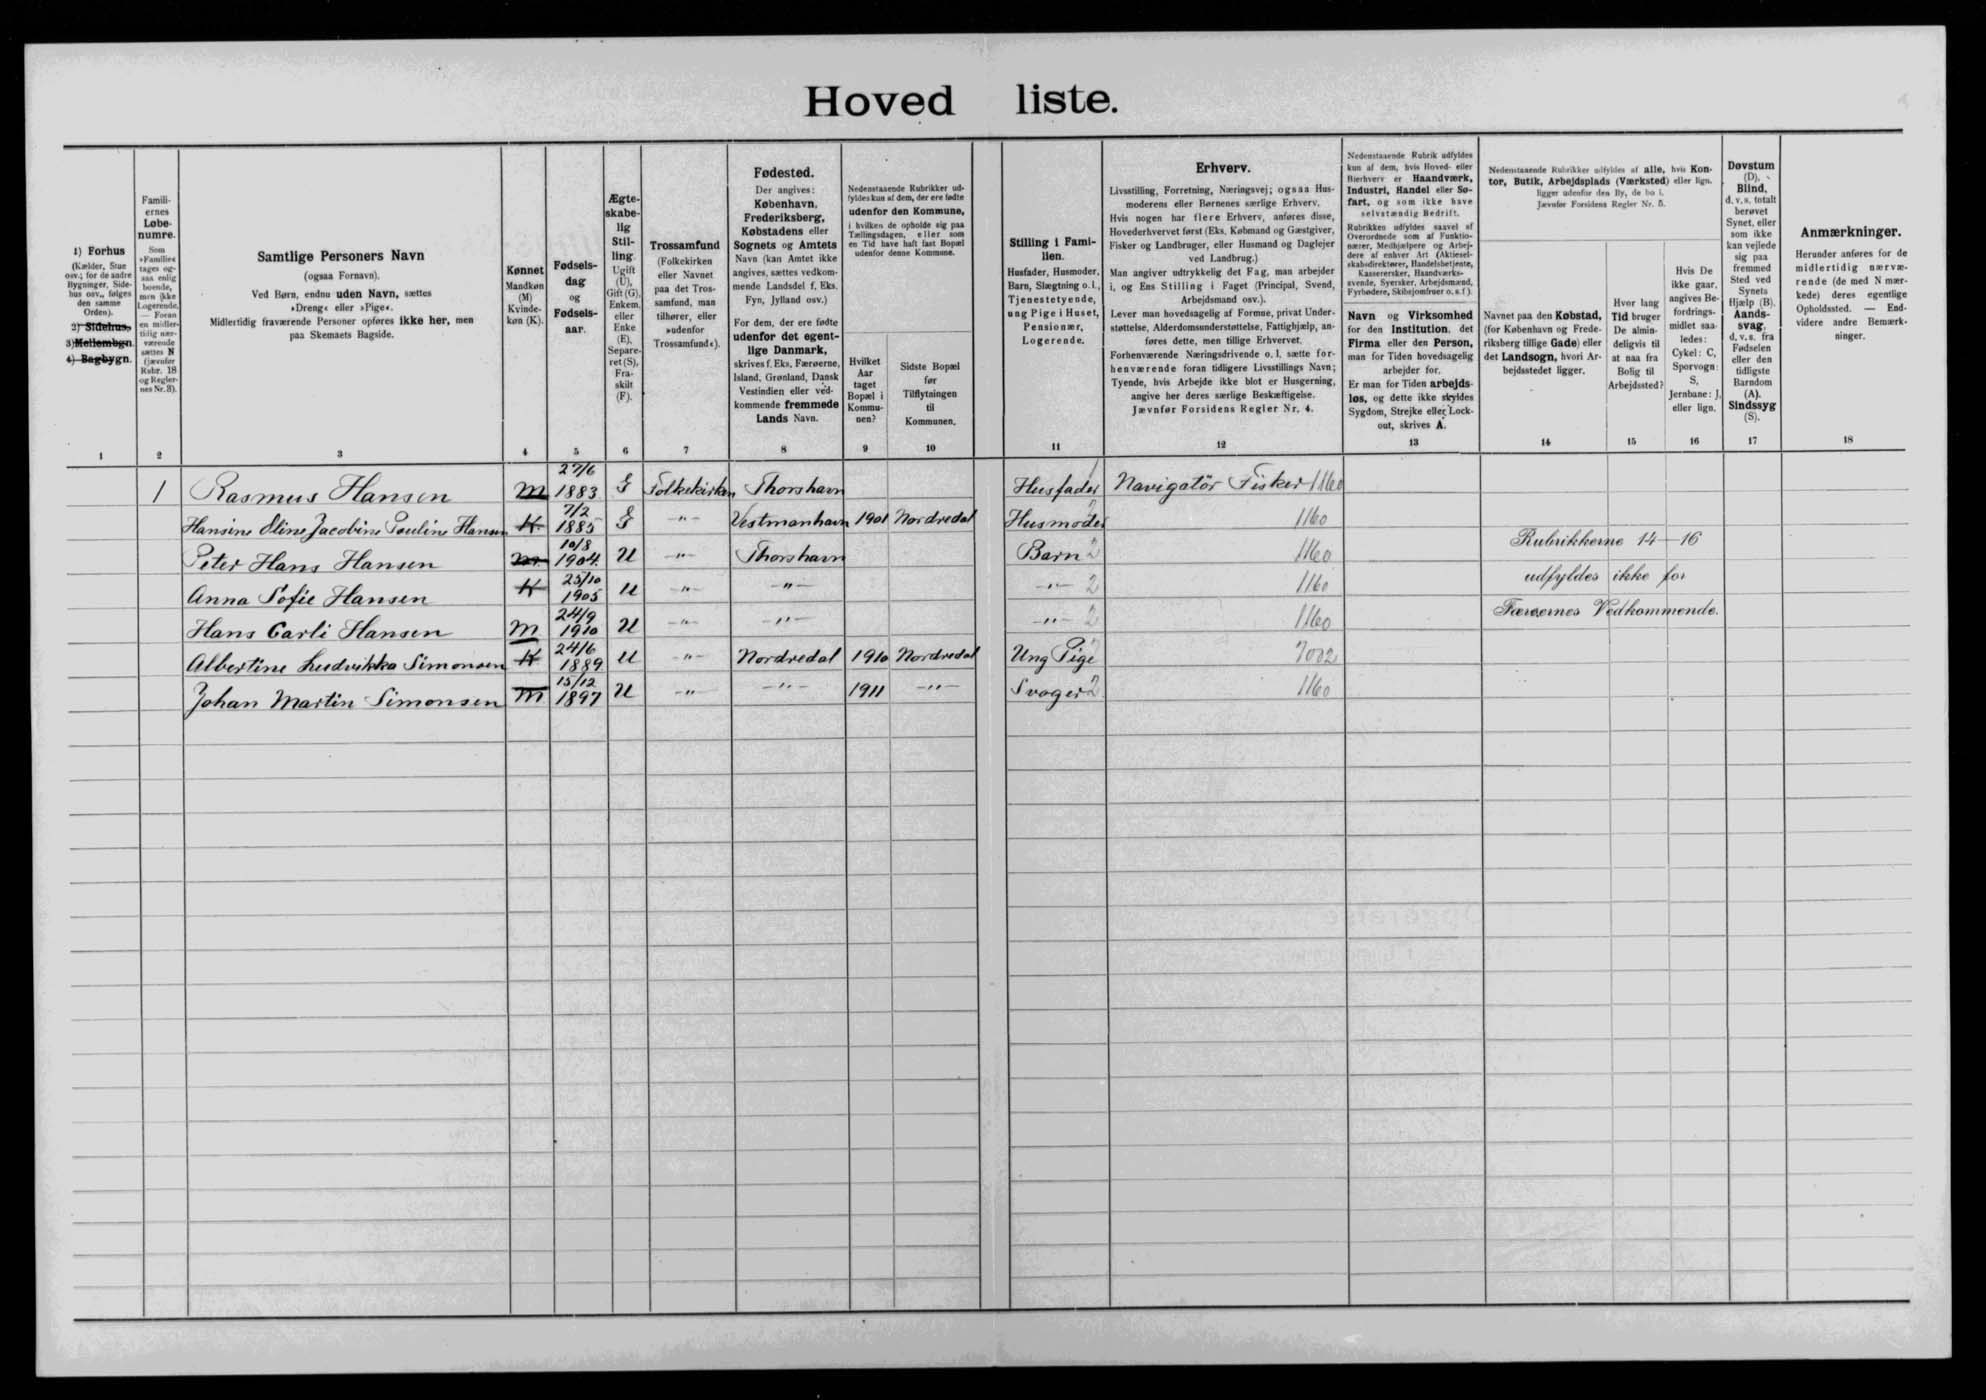 Hoved liste.
1) Forhus
(Kælder, Stue
osv.; for de andre
Bygninger, Side-
hus osv., følges
den samme
Orden).
2) Sidehus,
3) Mellembgn.
4) Bagbygn.
1
Famili-
ernes
Løbe-
numre.
Som
»Familie«
tages og-
saa enlig
boende,
men ikke
Logerende.
— Foran
en midler-
tidig nær-
værende
sættes N
(jævnfør
Rubr. 18
og Regler-
nes Nr. 3).
2
Samtlige Personers Navn
(ogsaa Fornavn).
Ved Børn, endnu uden Navn, sættes
»Dreng« eller »Pige«.
Midlertidig fraværende Personer opføres ikke her, men
paa Skemaets Bagside.
3
Kønnet
Mandkøn
(M)
Kvinde-
køn (K).
4
Fødsels-
dag
og
Fødsels-
aar.
5
Ægte-
skabe-
lig
Stil-
ling.
Ugift
(U),
Gift (G),
Enkem.
eller
Enke
(E),
Separe-
ret (S),
Fra-
skilt
(F).
6
Trossamfund
(Folkekirken
eller Navnet
paa det Tros-
samfund, man
tilhører, eller
»udenfor
Trossamfund«).
7
Fødested.
Der angives:
København,
Frederiksberg,
Købstadens eller
Sognets og Amtets
Navn (kan Amtet ikke
angives, sættes vedkom-
mende Landsdel f. Eks.
Fyn, Jylland osv.)
For dem, der ere fødte
udenfor det egent-
lige Danmark,
skrives f. Eks. Færøerne,
Island, Grønland, Dansk
Vestindien eller ved-
kommende fremmede
Lands Navn.
8
Nedenstaaende Rubrikker ud-
fyldes kun af dem, der ere fødte
udenfor den Kommune,
i hvilken de opholde sig paa
Tællingsdagen, eller som
en Tid have haft fast Bopæl
udenfor denne Kommune.
Hvilket
Aar
taget
Bopæl i
Kommu-
nen?
9
Sidste Bopæl
før
Tilflytningen
til
Kommunen.
10
Stilling i Fami-
lien.
Husfader, Husmoder,
Barn, Slægtning o. l.,
Tjenestetyende,
ung Pige i Huset,
Pensionær,
Logerende.
11
Erhverv.
Livsstilling, Forretning, Næringsvej; ogsaa Hus-
moderens eller Børnenes særlige Erhverv.
Hvis nogen har flere Erhverv, anføres disse,
Hovederhvervet først (Eks. Købmand og Gæstgiver,
Fisker og Landbruger, eller Husmand og Daglejer
ved Landbrug.)
Man angiver udtrykkelig det Fag, man arbejder
i, og Ens Stilling i Faget (Principal, Svend,
Arbejdsmand osv.).
Lever man hovedsagelig af Formue, privat Under-
støttelse, Alderdomsunderstøttelse, Fattighjælp, an-
føres dette, men tillige Erhvervet.
Forhenværende Næringsdrivende o. l. sætte for-
henværende foran tidligere Livsstillings Navn;
Tyende, hvis Arbejde ikke blot er Husgerning,
angive her deres særlige Beskæftigelse.
Jævnfør Forsidens Regler Nr. 4.
12
Nedenstaaende Rubrik udfyldes
kun af dem, hvis Hoved- eller
Bierhverv er Haandværk,
Industri, Handel eller Sø-
fart, og som ikke have
selvstændig Bedrift.
Rubrikken udfyldes saavel af
Overordnede som af Funktio-
nærer, Medhjælpere og Arbej-
dere af enhver Art (Aktiesel-
skabsdirektører, Handelsbetjente,
Kassererskér, Haandværks-
svende, Syersker, Arbejdsmænd,
Fyrbødere, Skibsjomfruer o. s. f.).
Navn og Virksomhed
for den Institution, det
Firma eller den Person,
man for Tiden hovedsagelig
arbejder for.
Er man for Tiden arbejds-
løs, og dette ikke skyldes
Sygdom, Strejke eller Lock-
out, skrives A.
13
Nedenstaaende Rubrikker udfyldes af alle, hvis Kon-
tor, Butik, Arbejdsplads (Værksted) eller lign.
ligger udenfor den By, de bo i.
Jævnfør Forsidens Regler Nr. 5.
Navnet paa den Købstad,
(for København og Frede-
riksberg tillige Gade) eller
det Landsogn, hvori Ar-
bejdsstedet ligger.
14
Hvor lang
Tid bruger
De almin-
deligvis til
at naa fra
Bolig til
Arbejdssted?
15
Hvis De
ikke gaar,
angives Be-
fordrings-
midlet saa-
ledes:
Cykel: C,
Sporvogn:
S,
Jernbane: J,
eller lign.
16
Døvstum
(D),
Blind,
d. v. s. totalt
berøvet
Synet, eller
som ikke
kan vejlede
sig paa
fremmed
Sted ved
Synets
Hjælp (B).
Aands-
svag,
d. v. s. fra
Fødselen
eller den
tidligste
Barndom
(A).
Sindssyg
(S).
17
Anmærkninger.
Herunder anføres for de
midlertidig nærvæ-
rende (de med N mær-
kede) deres egentlige
Opholdssted. — End-
videre andre Bemærk-
ninger.
18
1 Rasmus Hansen M 27/6 1883 G Folkekirken Thorshavn Husfader 1 Navigatör Fisker 1160
Hansine Oline Jacobine Pouline Hansen K. 7/2 1885 G -"- Vestmanhavn 1901 Nordredal Husmoder 2 1160
Peter Hans Hansen M. 10/8 1904. U -"- Thorshavn Barn 2 1160 Rubrikkerne 14-16
Anna Sofie Hansen K 25/10 1905 U -"- -"- -"- 2 1160 udfyldes ikke for
Hans Carli Hansen M 24/9 1910 U -"- -"- -"- 2 1160 Færøernes Vedkommende.
Albertine Ludvikka Simonsen K 24/6 1889 U -"- Nordredal 1910 Nordredal Ung Pige 7002
Johan Martin Simonsen M 15/12 1897 U -"- -"- 1911 -"- Svoger 2 1160